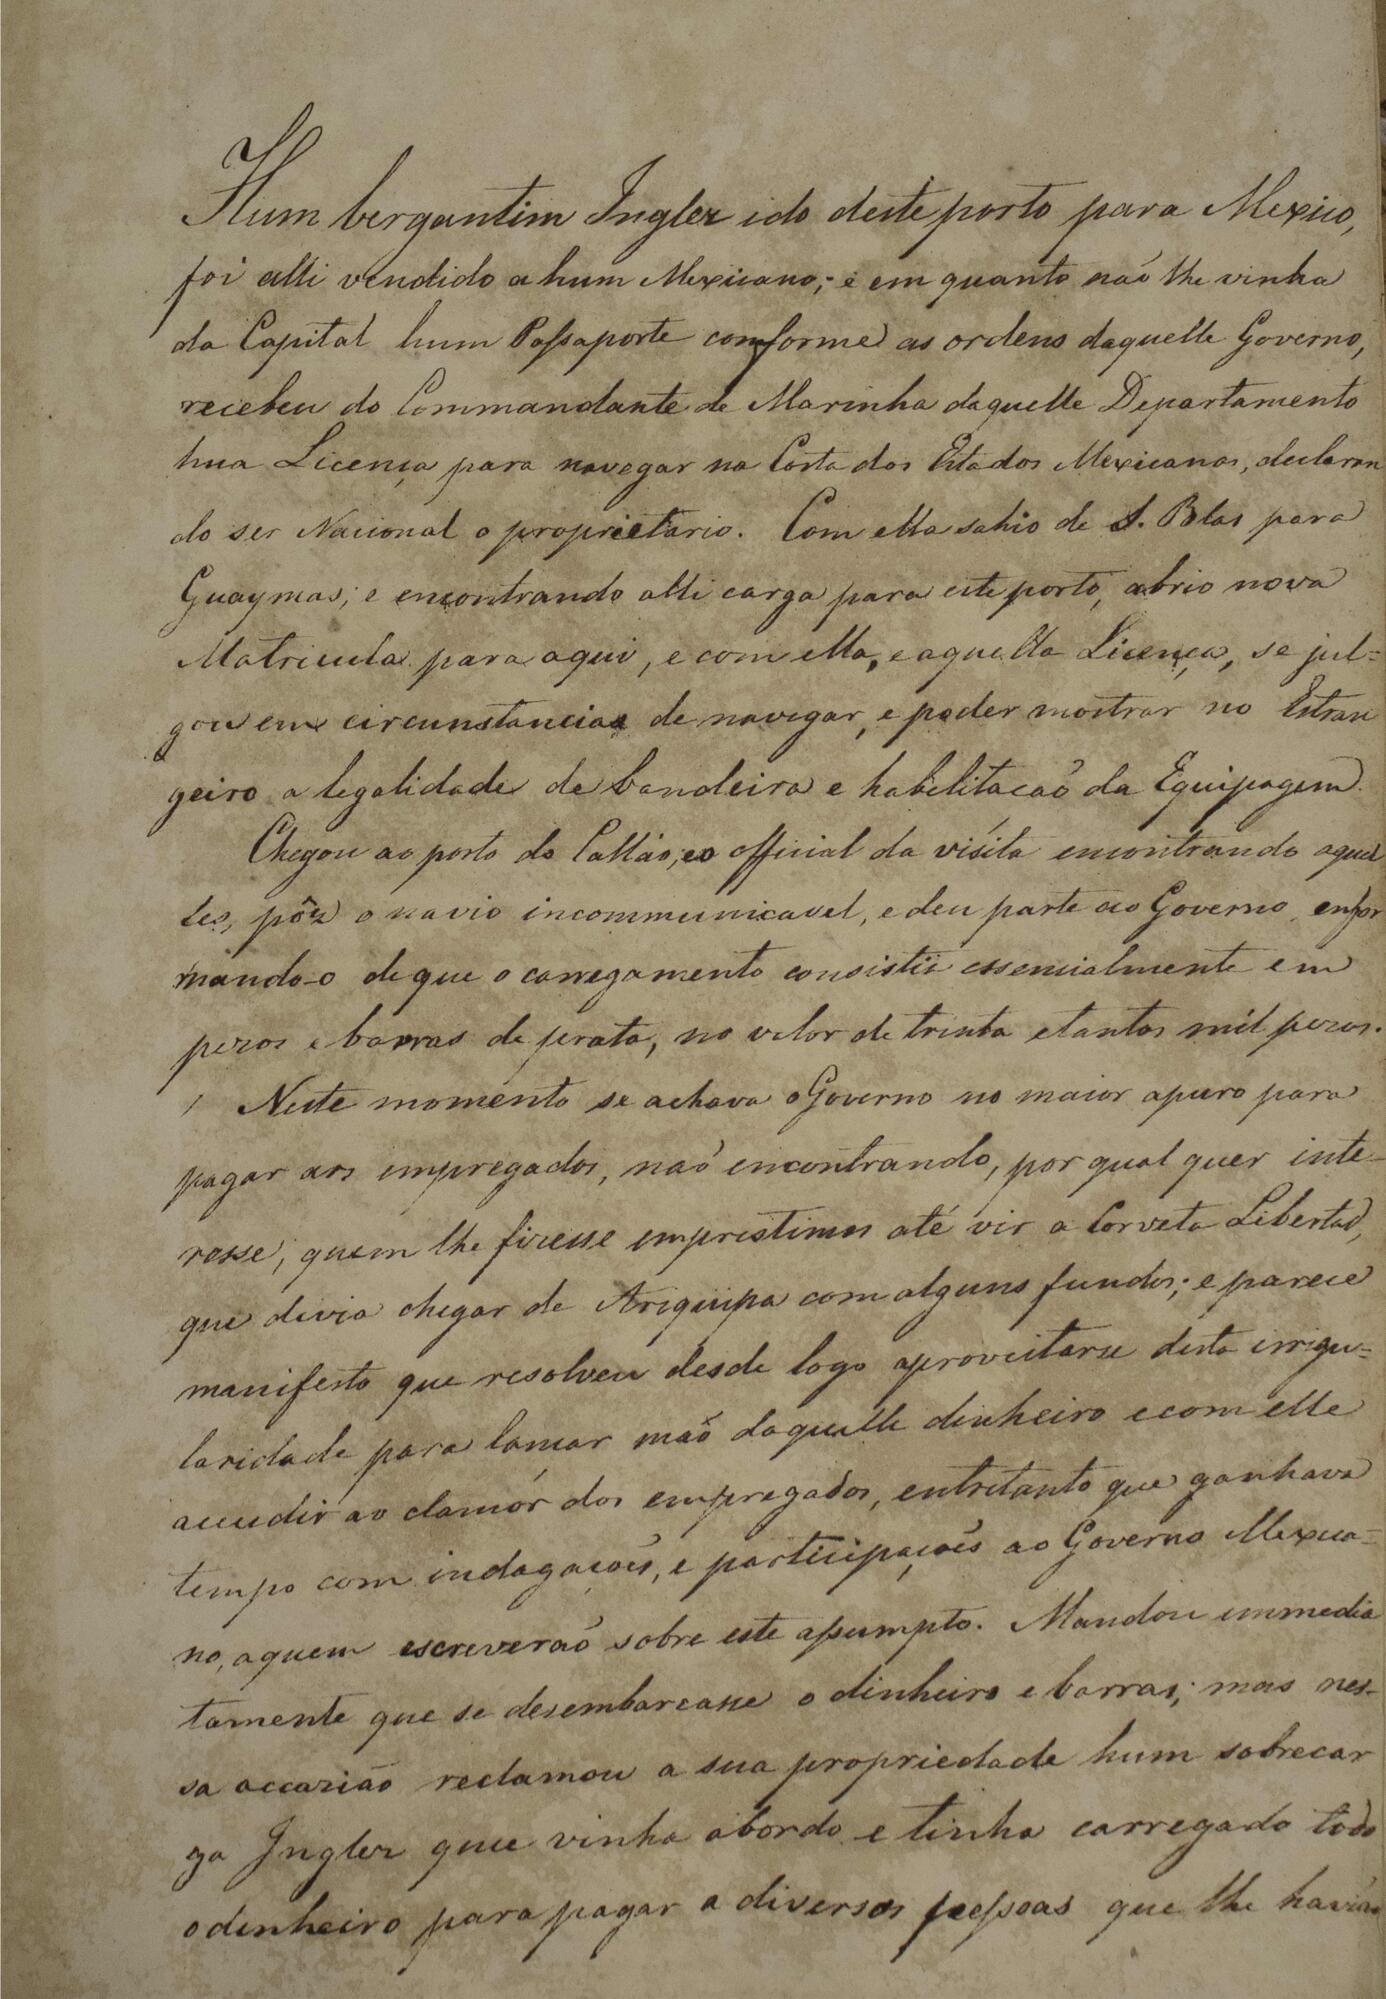 Hum bergantim Inglez ido deste porto para Mexico,
foi alli vendido a hum Mexicano; e em quanto naõ lhe vinha
da Capital hum Passaporte conforme as ordens daquelle Governo,
recebeu do Commandante de Marinha daquelle Departamento
hua Licença para navegar na Costa dos Estados Mexicanos, declaran
do ser Nacional o proprietario. Com ella sahio de S. Blas para
Guaymas; e encontrando alli carga para este porto, abrio nova
Matricula para aqui, e com ella, e aquella Licença, se jul=
gou em circunstancias de navegar, e poder mostrar no Estran
geiro a legalidade de bandeira e habilitacaõ da Equipagem.
Chegou ao porto do Calláo, e o official da visita encontrando aquel
les, pôz o navio incommunicavel, e deu parte ao Governo, enfor
mando-o de que o carregamento consistia essencialmente em
pezos e barras de prata, no valor de trinta e tantos mil pezos.
Neste momento se achava o Governo no maior apuro para
pagar aos empregados, naõ encontrando, por qual quer inte-
resse, quem lhe fizesse emprestimos até vir a Corveta Libertad,
que devia chegar de Arequipa com alguns fundos; e parece
manifesto que resolveu desde logo aproveitarse desta irregu=
laridade para lançar maõ daquelle dinheiro e com elle
accudir ao clamór dos empregados, entretanto que ganhava
tempo com indagaçoẽs, e participaçoẽs ao Governo Mexica=
no, a quem escreveraõ sobre este assumpto. Mandou immedia
tamente que se desembarcasse o dinheiro e barras; mas nes-
sa occazião reclamou a sua propriedade hum sobrecar
ga Inglez que vinha abordo e tinha carregado todo
o dinheiro para pagar a diversas pessoas que lhe haviaõ